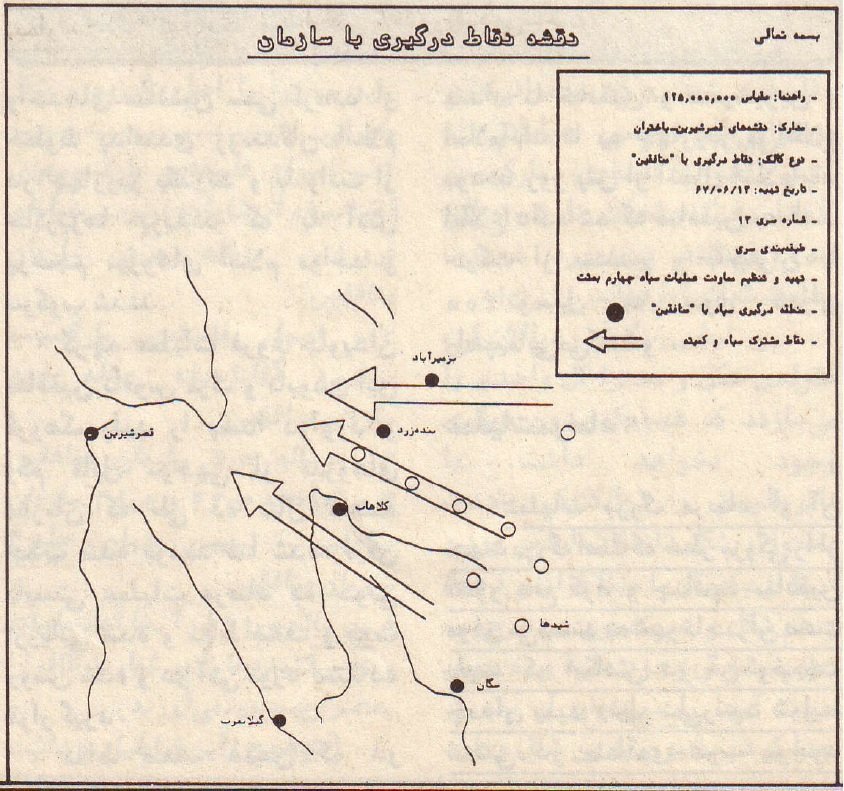 بسمه تعالی
نقشه نقاط درگیری با سازمان
- راهنما مقیاس ۱۲۵,۰۰۰,۰۰۰
- مدارک: نقشه‌های قصرشیرین-باختران
- نوع کالک: نقاط درگیری با "منافقین"
- تاریخ تهیه: ۶۷/۰۶/۱۴
- شماره سری
- طبقه‌بندی سری
- تهیه و تنظیم معاونت عملیات سپاه چهارم بعثت
- منطقه درگیری سپاه با "منافقین"
- نقاط مشترک سپاه و کمیته
قصرشیرین
کلاهاب
شهدها
سگان
گیلانغرب